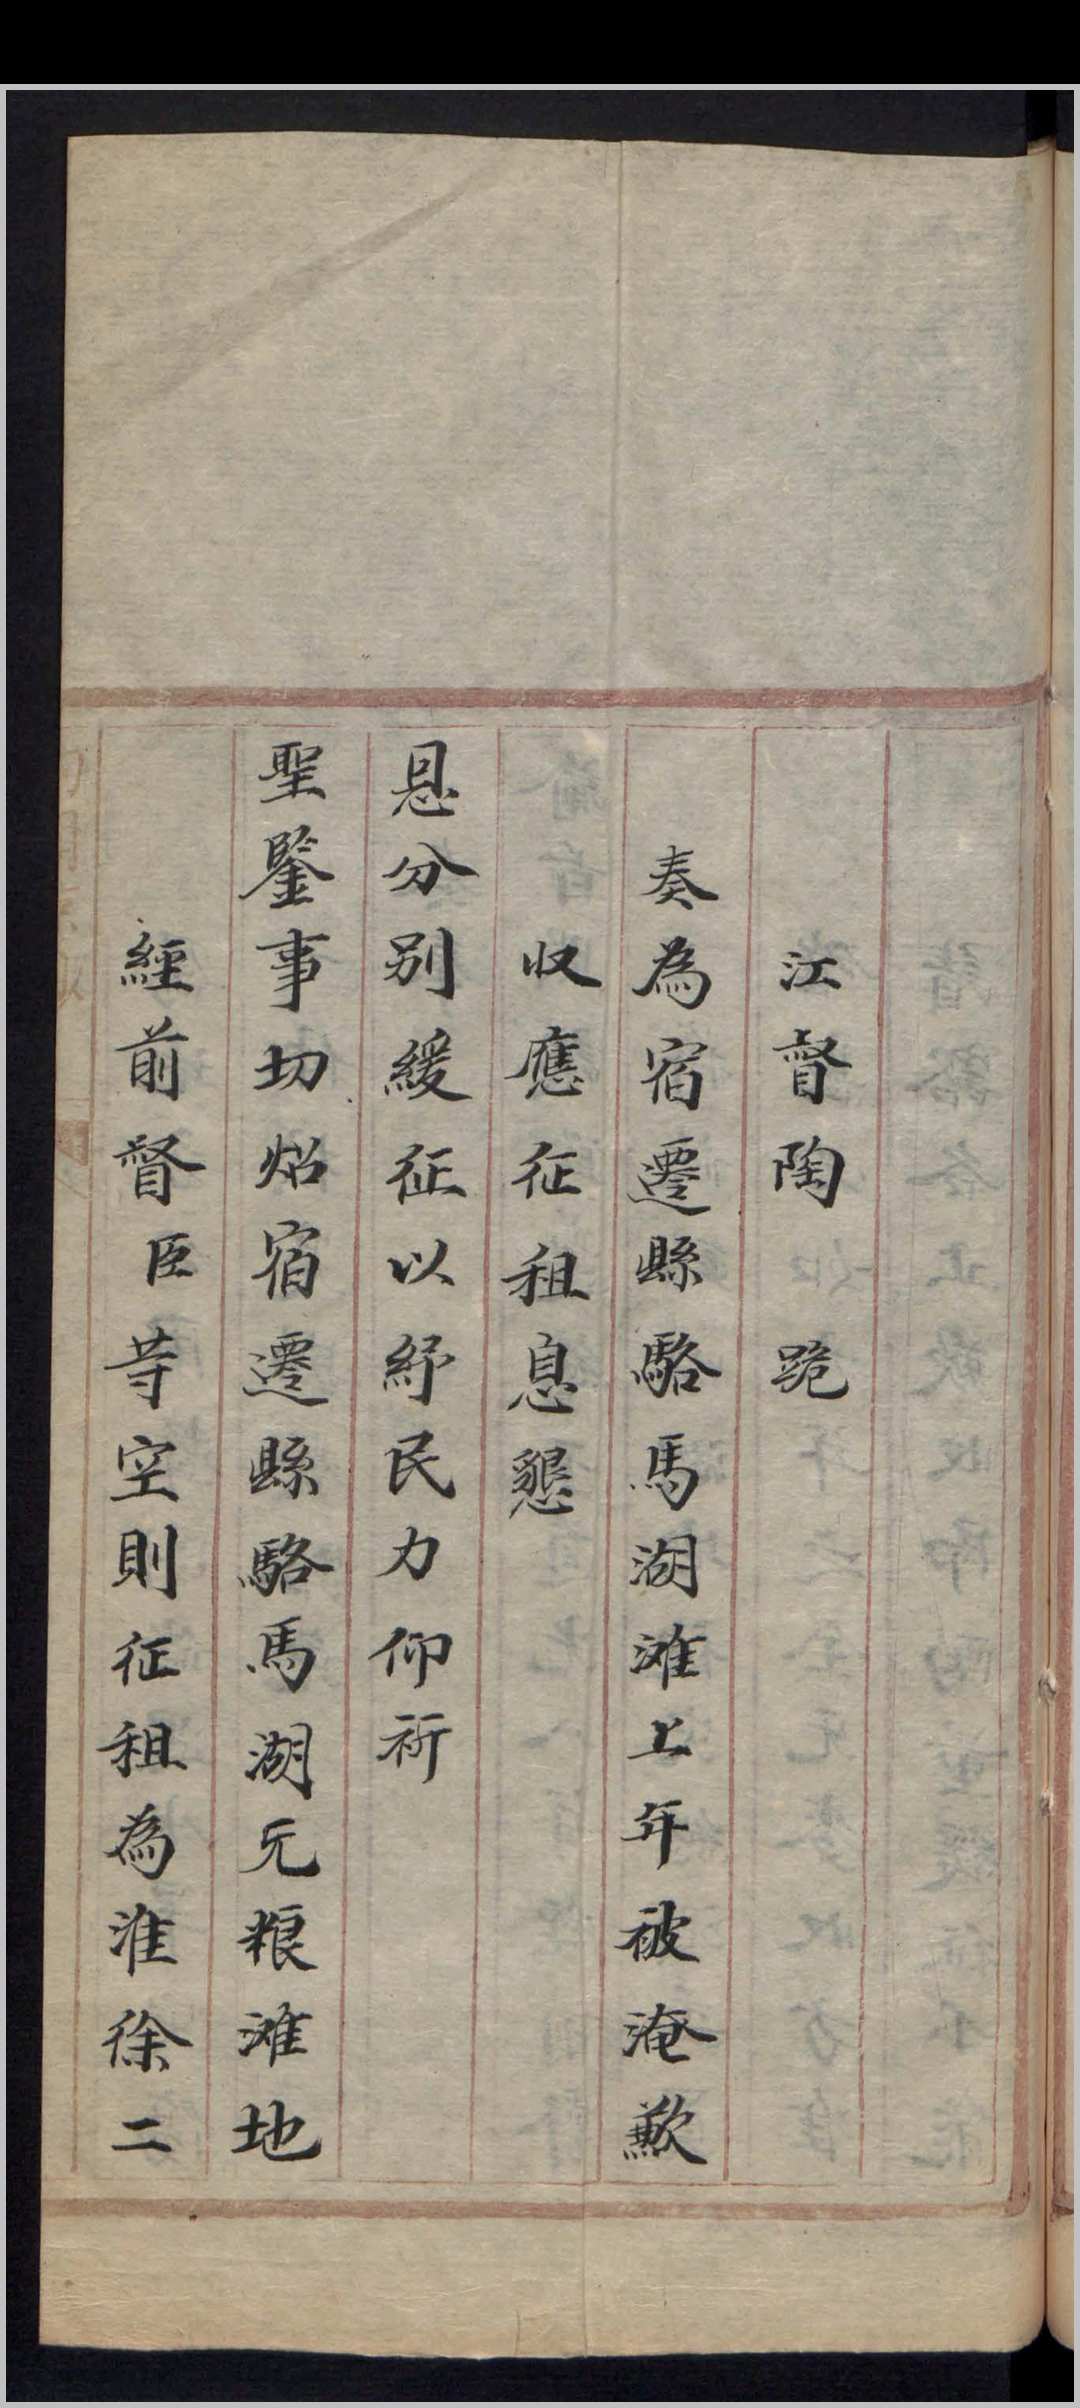 江督陶 跪
奏為宿遷縣駱馬湖滩上年被淹歉
収應征租息懇
恩分别緩征以紓民力仰祈
聖鑒事切炤宿遷縣駱馬湖无粮滩地
經前督臣䓁空則征租為淮徐二